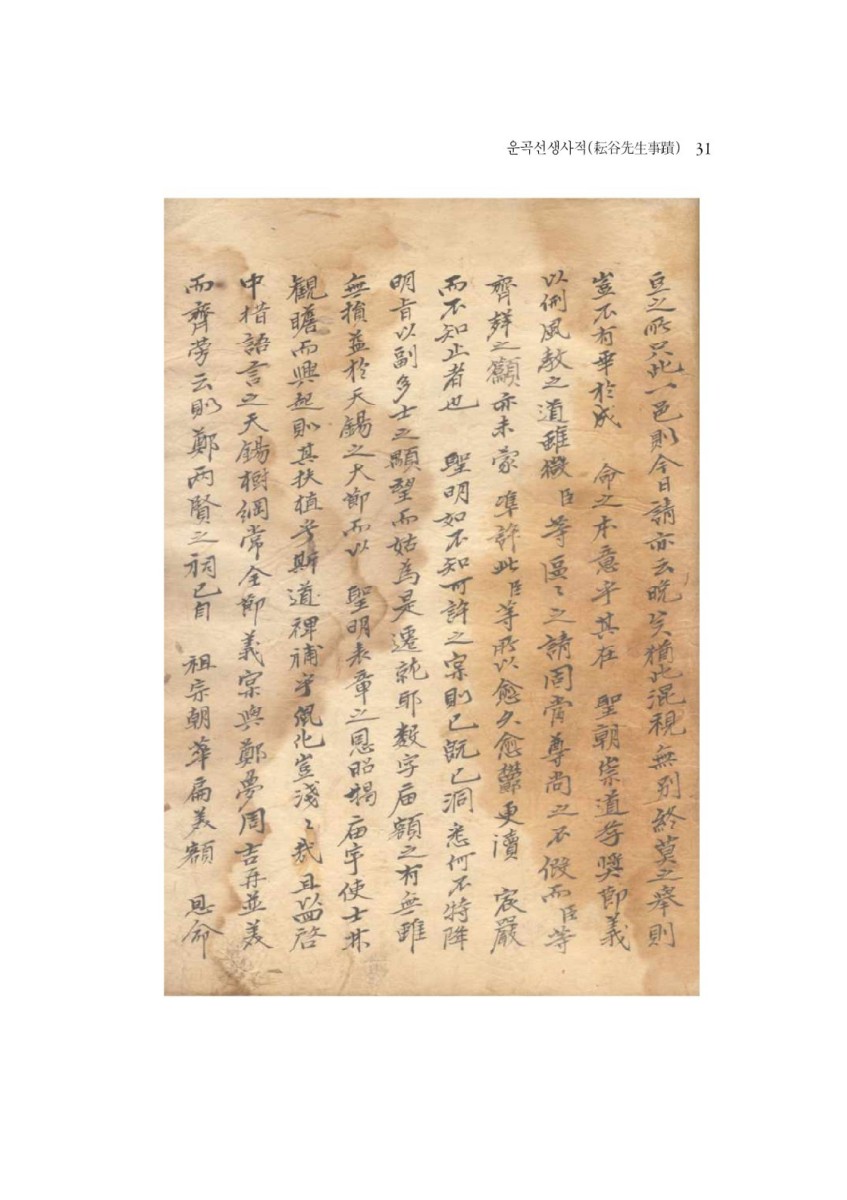 운곡선생사적(耘谷先生事蹟) 31
豆之所只此一邑則今日請亦云晩矣猶此混視無別終莫之擧則
豈不有乖於成 命之本意乎其在 聖朝崇道學奬節義
以刑風敎之道雖微臣等區〻之請固當尊尙之不假而臣等
齊籲之籲亦未蒙 準許此臣等所以愈久愈鬱更瀆 宸嚴
而不知止者也 聖明如不知可許之宲則已旣已洞悉何不特降
明旨以副多士之顒望而姑爲是遷就耶數字庙額之有無雖
無損益於天錫之大節而以 聖明表章之恩昭揭庙宇使士林
觀瞻而興起則其扶植乎斯道裨補乎風化豈淺〻哉且以啓
中措語言之天錫樹綱常全節義宲與鄭夢周吉再並美
而齊芳云則鄭两賢之祠已自 祖宗朝華扁美額 恩命